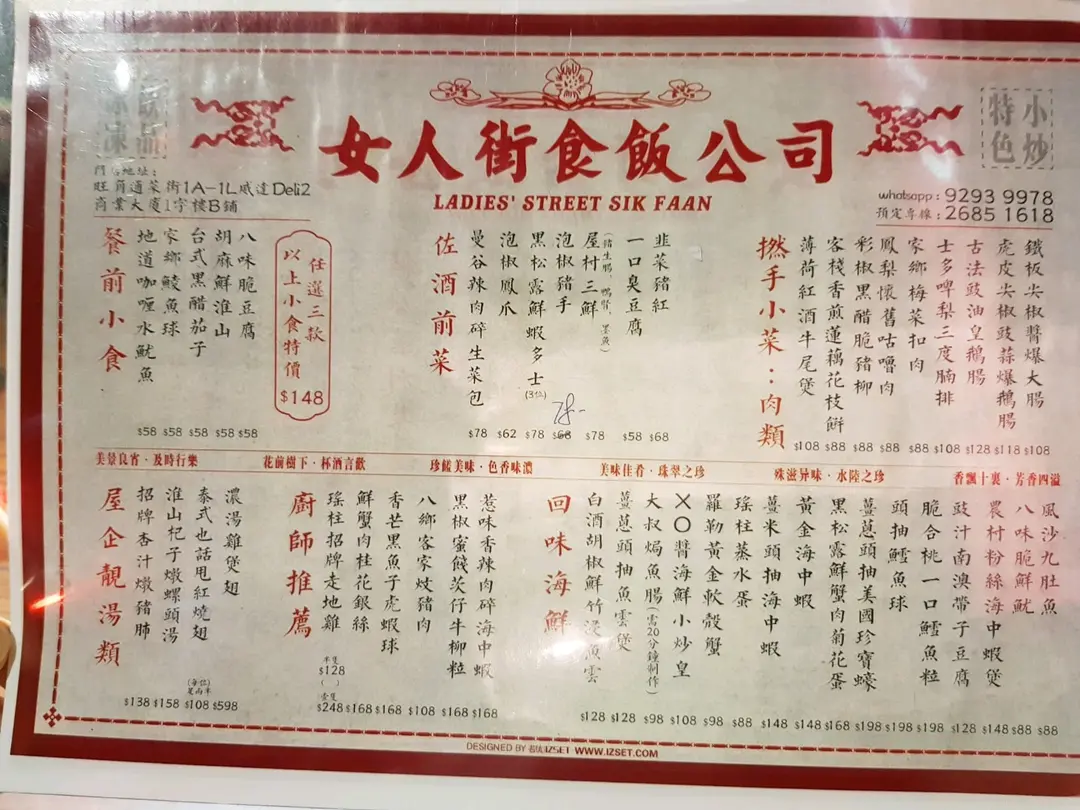 飲品
女人街食飯公司
LADIES' STREET SIK FAAN
小炒
特色
門店地址：
旺角通菜街1A-1L威達Deli2
商業大廈1字樓B鋪
whatsapp : 9293 9978
預定專線 : 2685 1618
鐵板尖椒醬爆大腸 $108
虎皮尖椒豉蒜爆鵝腸 $118
古法豉油皇鵝腸 $128
士多啤梨三度腩排 $108
家鄉梅菜扣肉 $88
鳳梨懷舊咕嚕肉 $88
彩椒黑醋脆豬柳 $88
客棧香煎蓮藕花枝餅 $88
薄荷紅酒牛尾煲 $108
撚手小菜：肉類
韭菜豬紅 $68
一口臭豆腐 $58
屋村三鮮 $78
(豬生腸、鴨腎、墨魚)
泡椒豬手 $68
78-
黑松露鮮蝦多士 $78
(3位)
泡椒鳳爪 $62
曼谷辣肉碎生菜包 $78
佐酒前菜
任選三款
以上小食特價
$148
八味脆豆腐 $58
胡麻鮮淮山 $58
台式黑醋茄子 $58
家鄉鯪魚球 $58
地道咖喱水魷魚 $58
餐前小食
美景良宵·及時行樂
花前樹下·杯酒言歡
珍饈美味·色香味濃
美味佳肴·珠翠之珍
殊滋异味·水陸之珍
香飄十裏·芳香四溢
風沙九肚魚 $88
八味脆鮮魷 $88
農村粉絲海中蝦煲 $148
豉汁南澳帶子豆腐 $128
脆合桃一口鱈魚粒 $198
頭抽鱈魚球 $198
薑蔥頭抽美國珍寶蠔 $198
黑松露鮮蟹肉菊花蛋 $168
黃金海中蝦 $148
薑米頭抽海中蝦 $148
瑤柱蒸水蛋 $88
羅勒黃金軟殼蟹 $98
XO醬海鮮小炒皇 $108
大叔焗魚腸 $98
(需20分鐘制作)
薑蔥頭抽魚雲煲 $128
白酒胡椒鮮竹浸魚雲 $128
回味海鮮
惹味香辣肉碎海中蝦 $168
黑椒蜜餞茨仔牛柳粒 $168
八鄉客家炆豬肉 $108
香芒黑魚子虎蝦球 $168
鮮蟹肉桂花銀絲 $168
瑤柱招牌走地雞
半隻
$128
壹隻
$248
廚師推薦
濃湯雞煲翅 $598
泰式也話甩紅燒翅 $108
(每位)
淮山杞子燉螺頭湯 $158
招牌杏汁燉豬肺 $138
屋企靚湯類
DESIGNED BY IZSET WWW.IZSET.COM